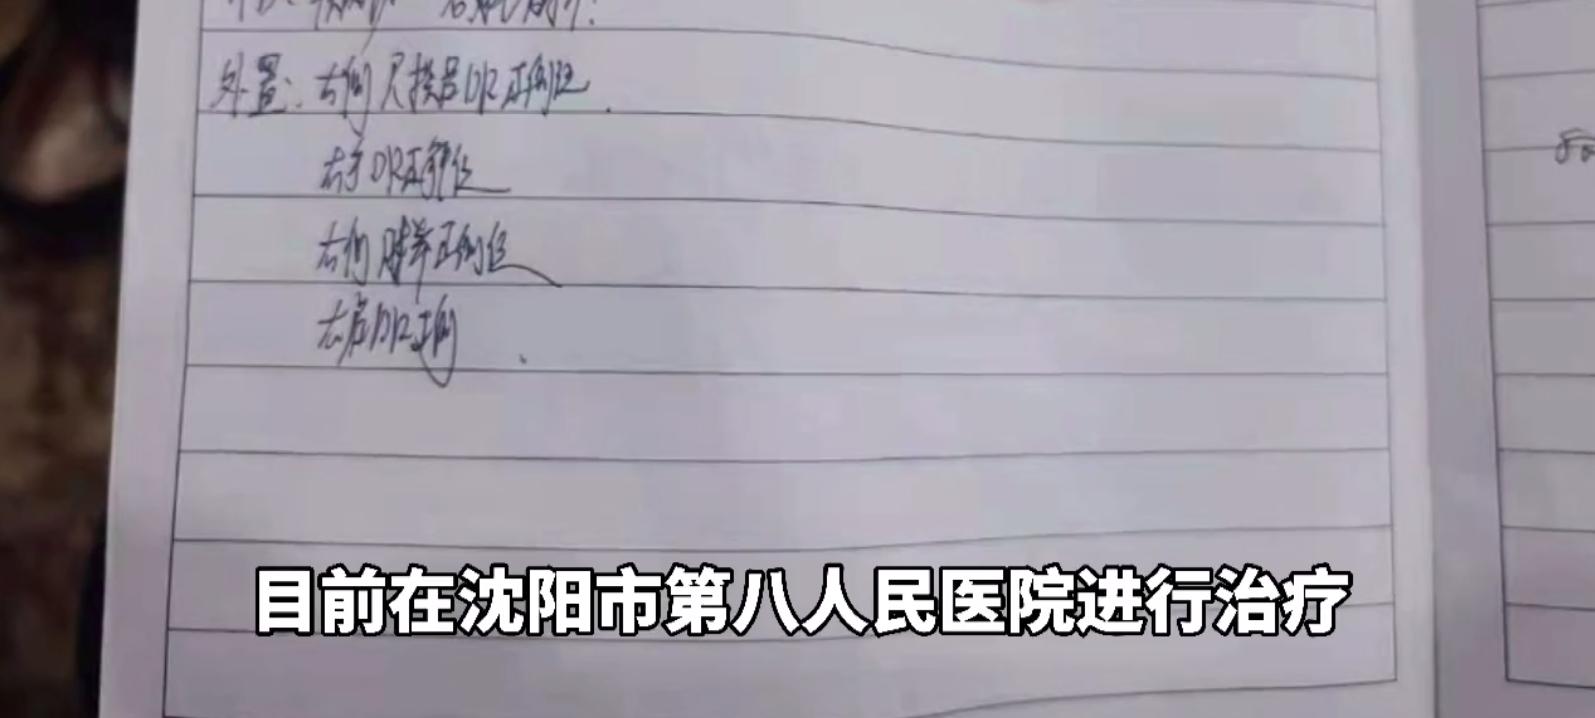 外置：右侧尺桡骨DR正侧位.
右手DR正斜位
右侧肘关正侧位
右肩DR正侧.
目前在沈阳市第八人民医院进行治疗